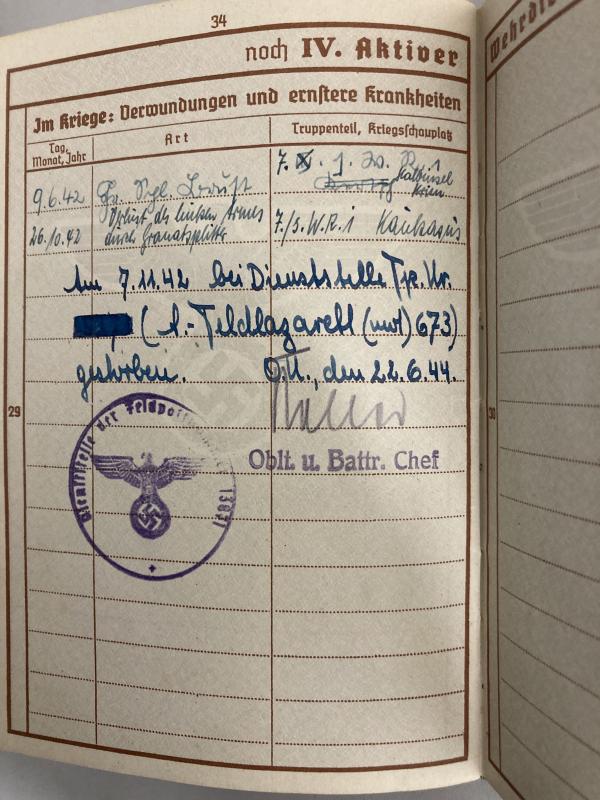 34
noch IV. Aktiver
Wehrdie
Im Kriege: Verwundungen und ernstere Krankheiten
Tag, Monat, Jahr
Art
Truppenteil, Kriegsschauplatz
9.6.42 Brust 7.
Krim
26.10.42 Verlust des linken Armes durch Granatsplitter 7./ Kaukasus
Am 7.11.42 bei Dienststelle Fp. Nr.
( Feldlazarett (mot) 673)
gestorben. O.U., den 22.6.44.
29
30
Oblt. u. Battr. Chef
Dienststelle der Feldpost